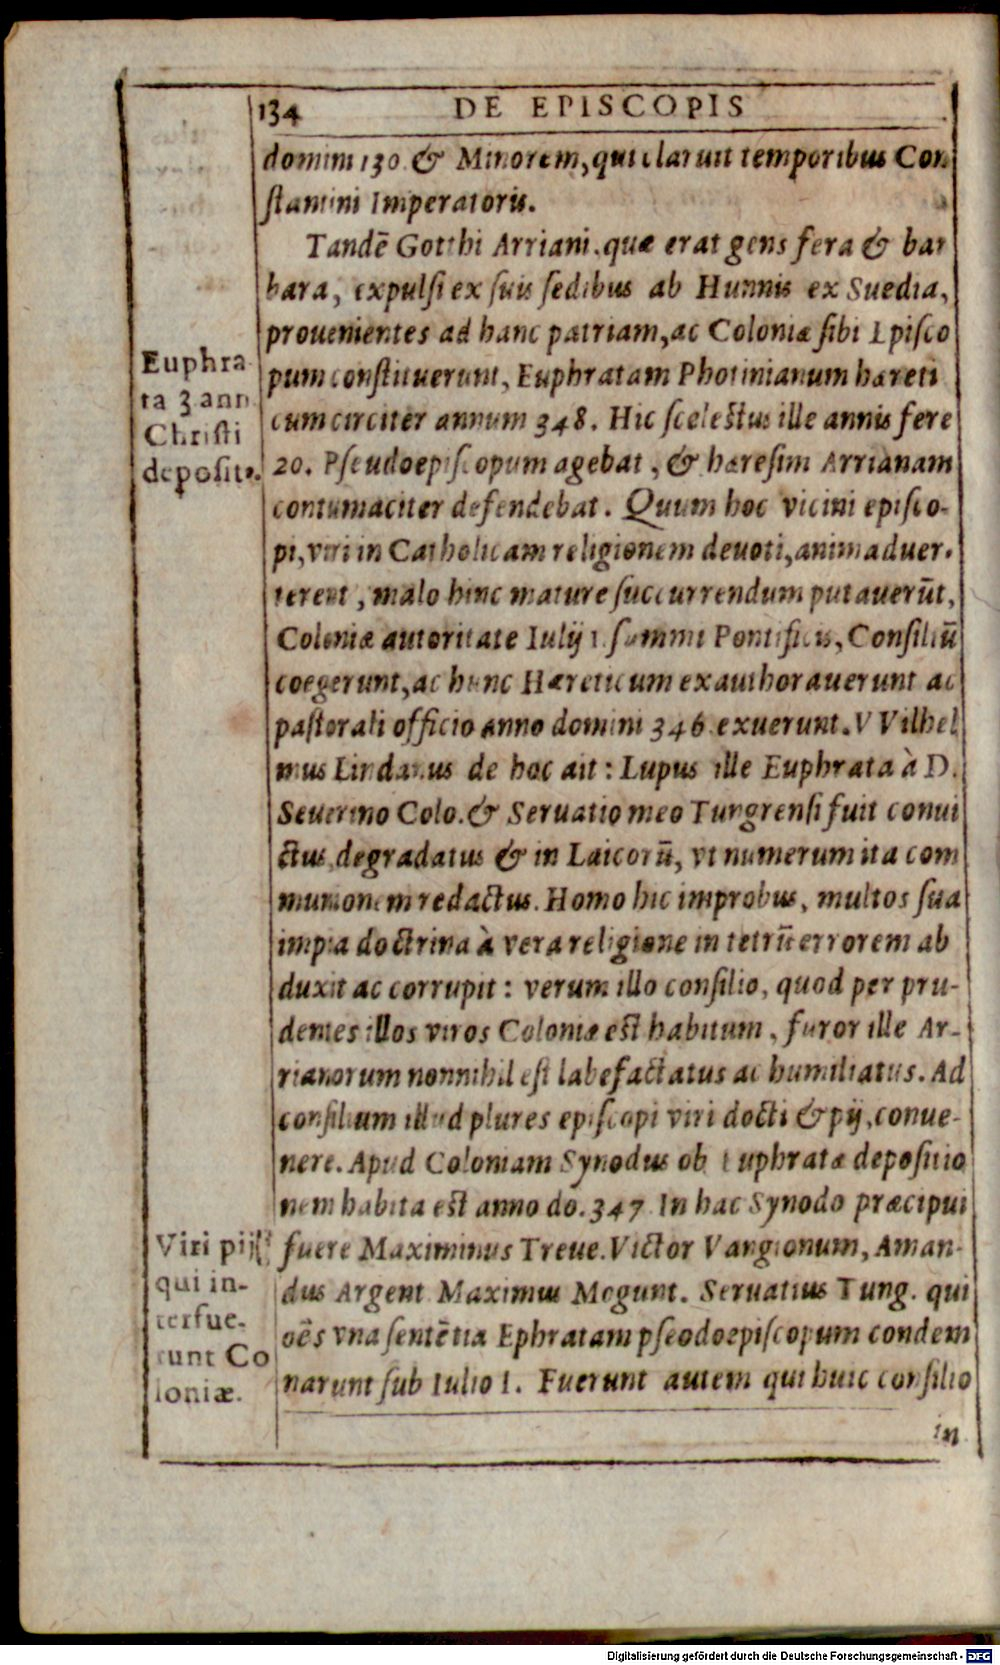 134 DE EPISCOPIS
domini 130. & Minorem, qui claruit temporibus Con
ſtantini Imperatoris.
Tandē Gotthi Arriani, quæ erat gens fera & bar
bara, expulſi ex ſuis ſedibus ab Hunnis ex Suedia,
prouenientes ad hanc patriam, ac Coloniæ ſibi Epiſco
pum conſtituerunt, Euphratam Photinianum hæreti
cum circiter annum 348. Hic ſceleſtus ille annis fere
20. Pſeudoepiſcopum agebat, & hæreſim Arrianam
contumaciter defendebat. Quum hoc vicini epiſco-
pi, viri in Catholicam religionem deuoti, animaduer-
terent, malo hinc mature ſuccurrendum putauerūt,
Coloniæ autoritate Iulij 1. ſummi Pontificis, Conſiliū
coegerunt, ac hunc Hæreticum exauthorauerunt ac
paſtorali officio anno domini 346. exuerunt. VVilhel
mus Lindanus de hoc ait: Lupus ille Euphrata à D.
Seuerino Colo. & Seruatio meo Tungrenſi fuit conui
ctus, degradatus & in Laicorū, vt numerum ita com
munionem redactus. Homo hic improbus, multos ſua
impia doctrina à vera religione in tetrū errorem ab
duxit ac corrupit: verum illo conſilio, quod per pru-
dentes illos viros Coloniæ eſt habitum, furor ille Ar-
rianorum nonnihil eſt labefactatus ac humiliatus. Ad
conſilium illud plures epiſcopi viri docti & pij, conue-
nere. Apud Coloniam Synodus ob Euphratæ depoſitio
nem habita eſt anno do. 347. In hac Synodo præcipui
fuere Maximinus Treue. Victor Vangionum, Aman-
dus Argent. Maximus Mogunt. Seruatius Tung. qui
oēs vna ſentētia Ephratam pſeodoepiſcopum condem
narunt ſub Iulio 1. Fuerunt autem qui huic conſilio
in
Euphra-
ta 3 ann
Chriſti
depoſitꝰ.
Viri pijſſ
qui in-
terfue-
runt Co
loniæ.
Digitalisierung gefördert durch die Deutsche Forschungsgemeinschaft - DFG